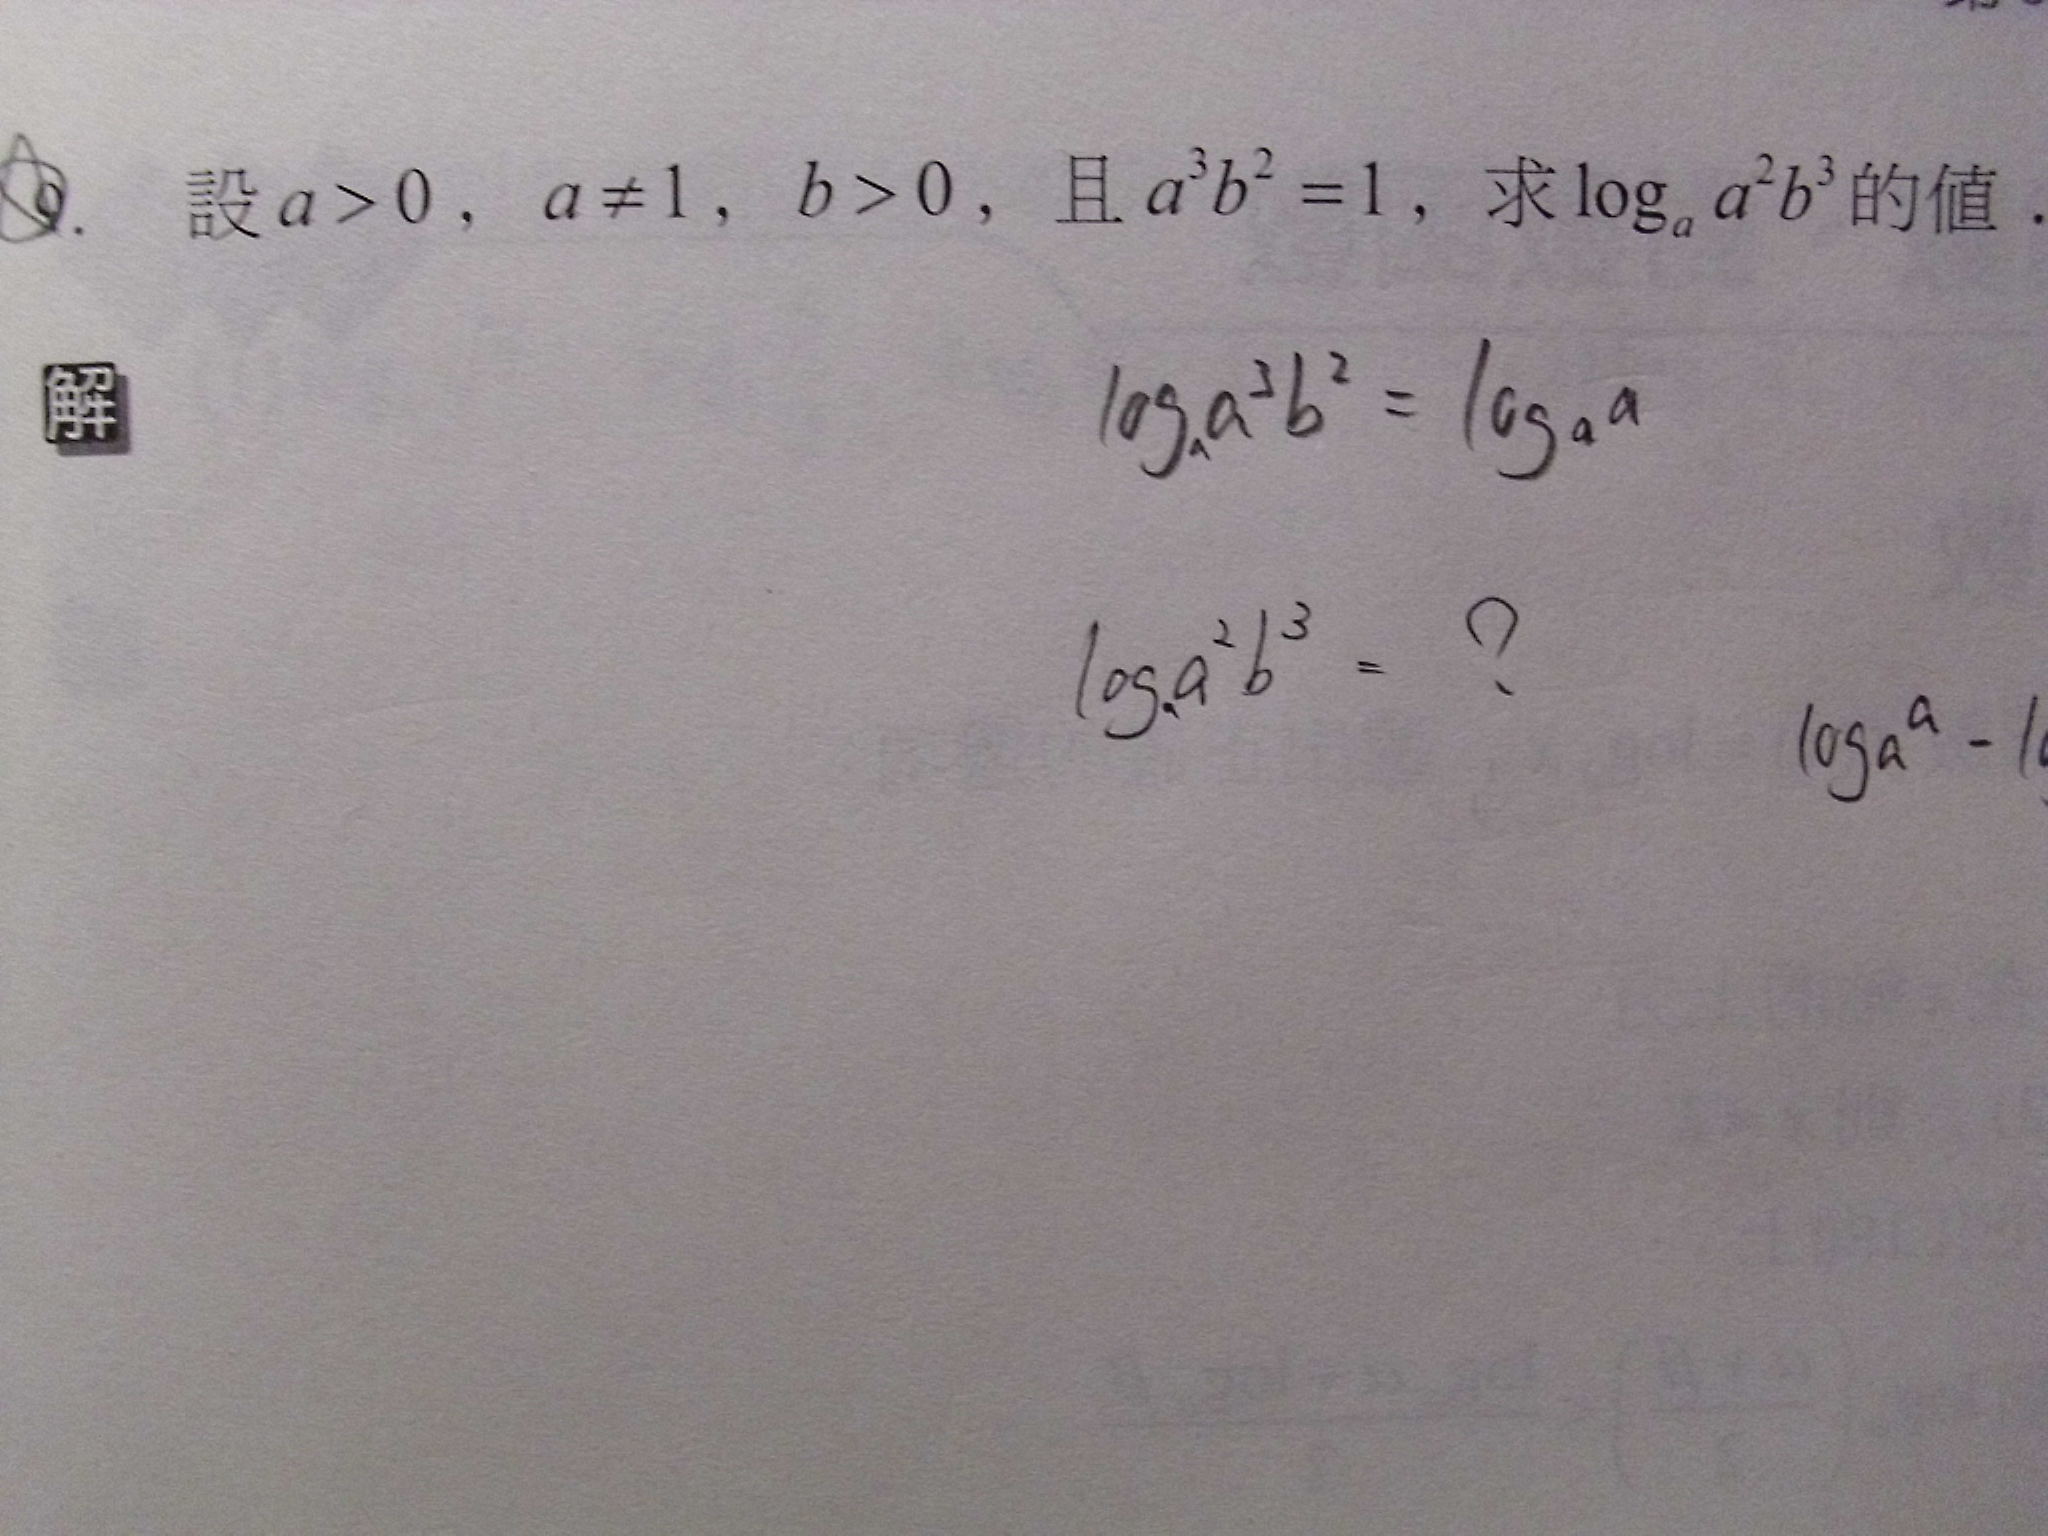 9. 設 a > 0 , a ≠ 1 , b > 0 , 且 a³b² = 1 , 求 logₐ a²b³ 的值 .
解
logₐ a³b² = logₐ a
logₐ a²b³ = ?
logₐ a -